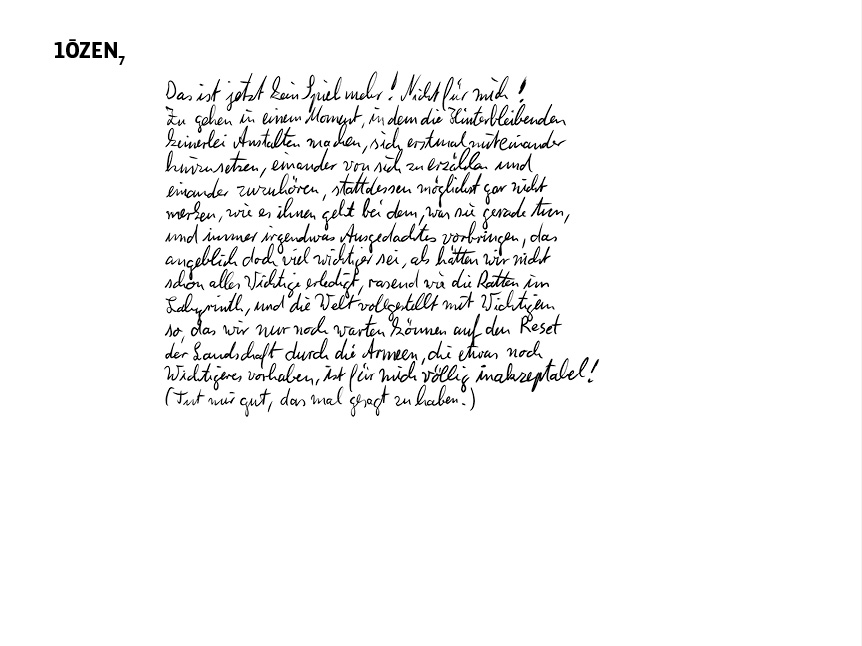 1ŌZEN7
Das ist jetzt kein Spiel mehr! Nicht für mich!
Zu gehen in einem Moment, in dem die Hinterbleibenden
keinerlei Anstalten machen, sich erstmal miteinander
hinzusetzen, einander von sich zu erzählen und
einander zuzuhören, stattdessen möglichst gar nicht
merken, wie es ihnen geht bei dem, was sie gerade tun,
und immer irgendwas Ausgedachtes vorbringen, das
angeblich doch viel wichtiger sei, als hätten wir nicht
schon alles Wichtige erledigt, rasend wie die Ratten im
Labyrinth, und die Welt vollgestellt mit Wichtigem
so, das wir nur noch warten können auf den Reset
der Landschaft durch die Armeen, die etwas noch
Wichtigeres vorhaben, ist für mich völlig inakzeptabel!
(Tut mir gut, das mal gesagt zu haben.)